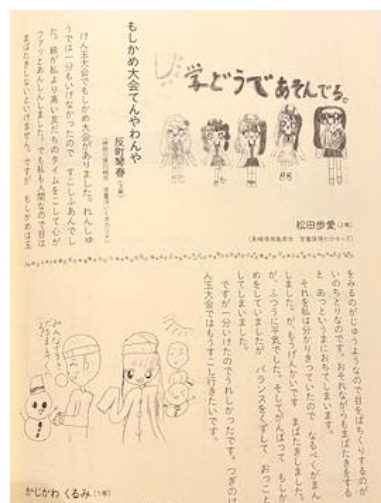 学どうであそんでる。
松田歩愛(2年)
もしかめ大会てんやわんや
反町琴春
けん玉大会でもしかめ大会がありました。れんしゅ
うでは一分もいけなかったので すこしふあんでし
た。姉が私より高い友だちのタイムをこして心が
ファッとあんしんしました。でも私も人間なので目は
まばたきしないといけません。ですが もしかめは玉
をみるのがじゅうようなので目をぱちくりするのが
いのちとりなのです。おそれながらもまばたきをする
と あっというまにおちてしまいます。
それを私は分かりきっていたので なるべくがまん
しました。が、もうげんかいです まばたきしました。
が、ふつうに平気でした。そしてがんばって もしか
めをしていましたが バランスをくずして おっこと
してしまいました。
ですが一分いけたのでうれしかったです。つぎのけ
ん玉大会ではもうすこし行きたいです。
かじかわ くるみ(1年)